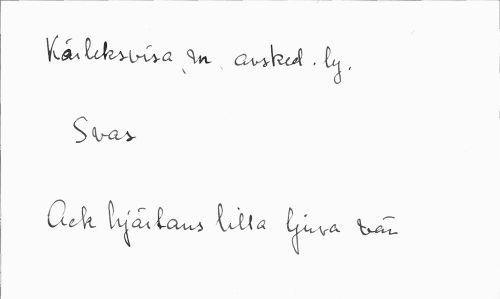 Kärleksvisa, m. avsked. ly.
Svas
Ack hjärtans lilla ljuva vän